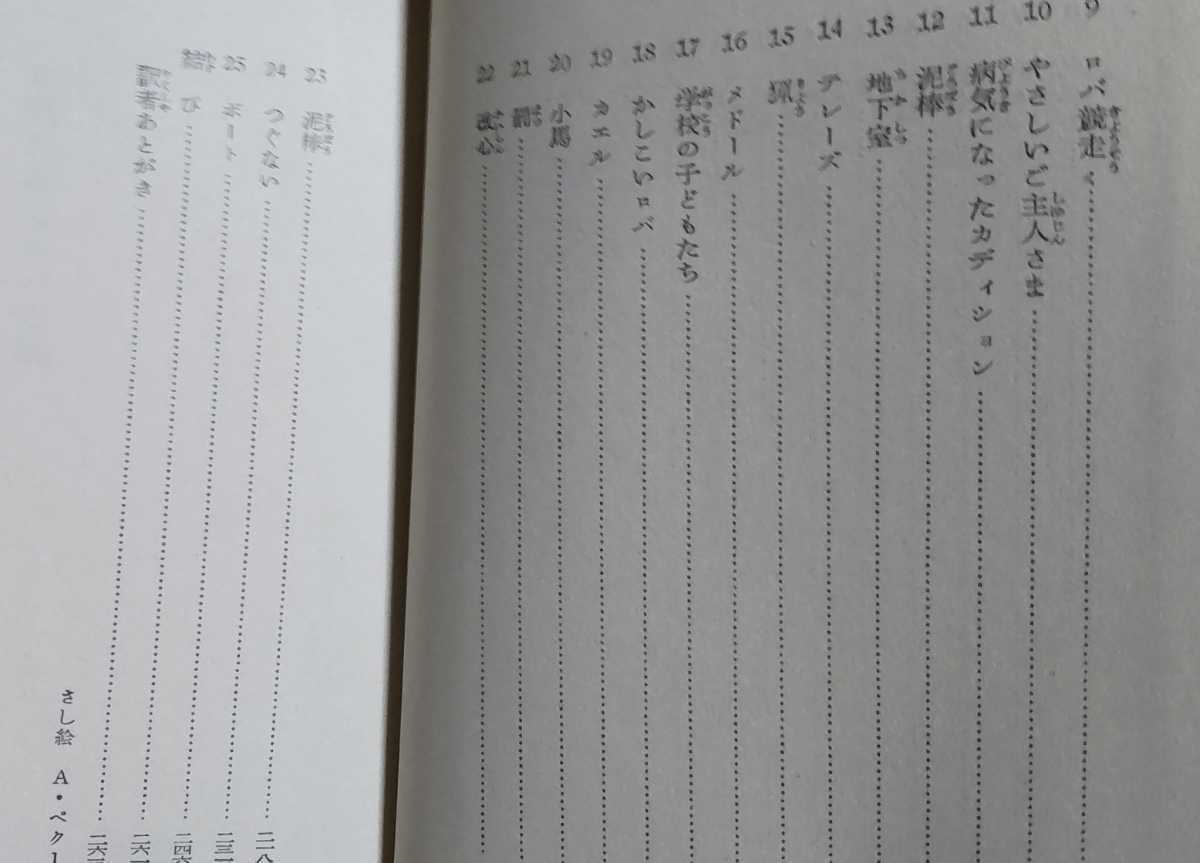 9 ロバ競走
10 やさしいご主人さま
11 病気になったカディション
12 泥棒
13 地下室
14 テレーズ
15 猟
16 メドール
17 学校の子どもたち
18 かしこいロバ
19 カエル
20 小馬
21 罰
22 改心
23 泥棒
24 つぐない
25 ボート
結び
訳者あとがき
さし絵 A・ペクー